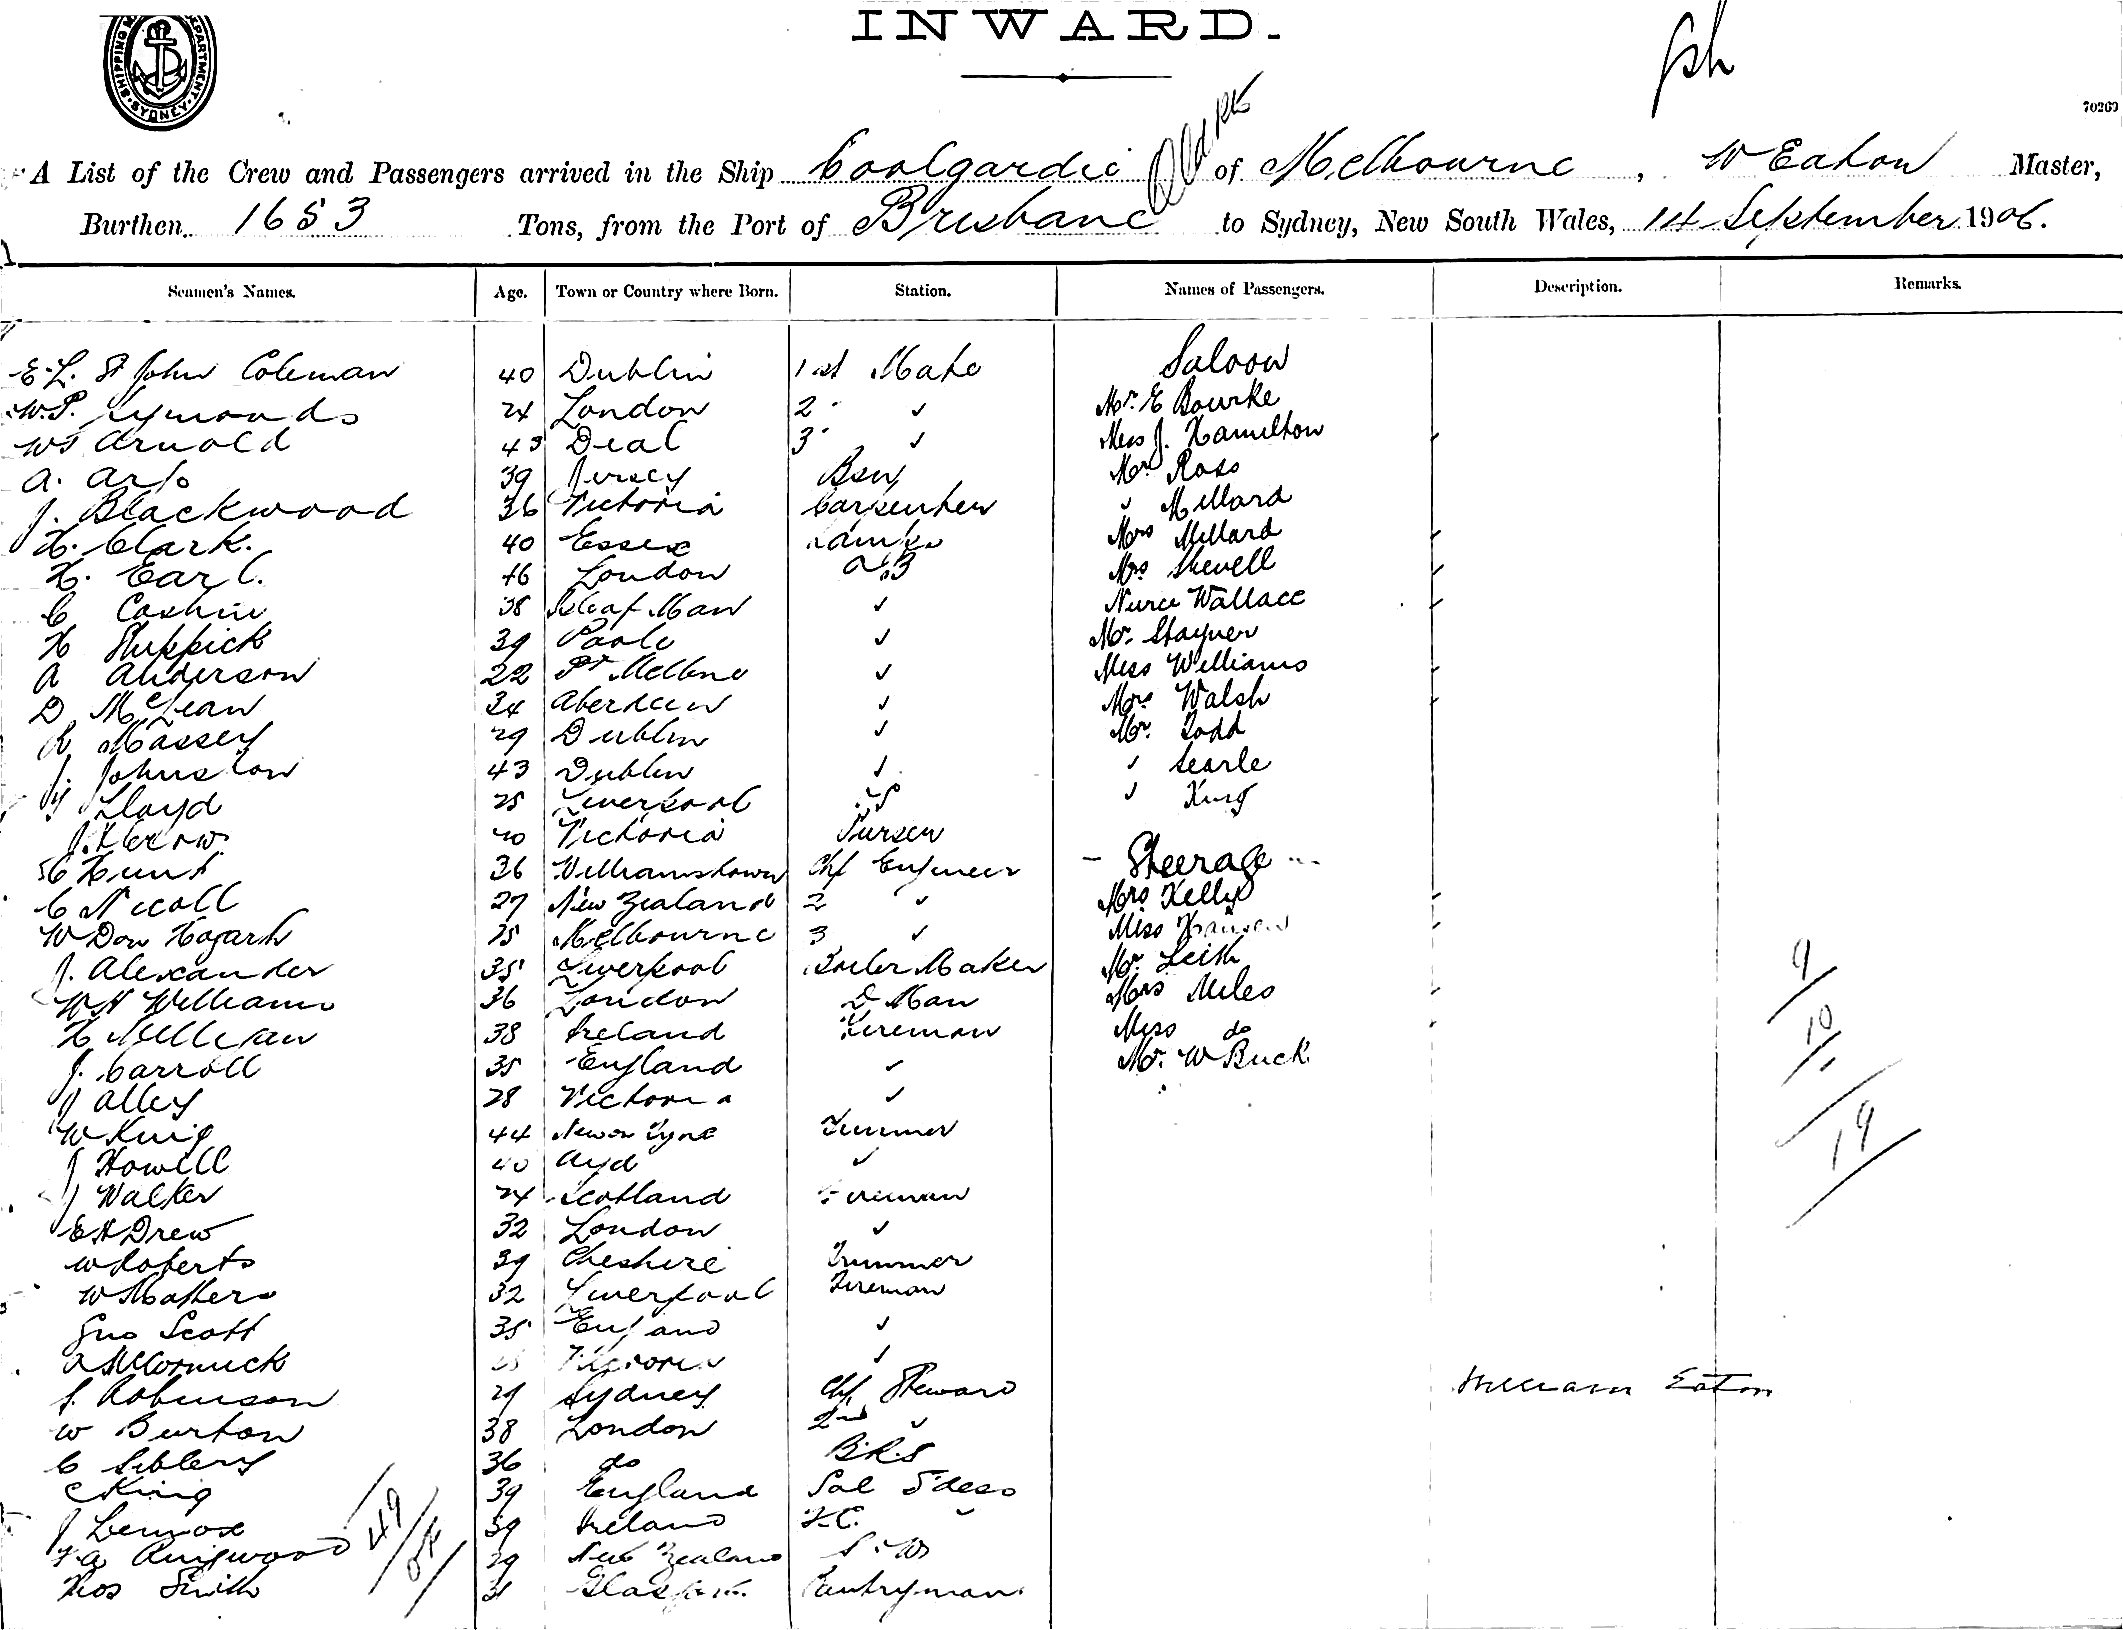 INWARD.
70269
A List of the Crew and Passengers arrived in the Ship Coolgardie of Melbourne, W Eaton Master,
Burthen 1653 Tons, from the Port of Brisbane to Sydney, New South Wales, 14 September 1906.
Seamen's Names. Age. Town or Country where Born. Station. Names of Passengers. Description. Remarks.
Saloon
E.L. St John Coleman 40 Dublin 1st Mate
W.P. Symonds 24 London 2 ✓ Mr. E Bourke
W Arnold 43 Deal 3 ✓ Miss J. Hamilton
A. 39 Jersey Bsn Mr Ross
J. Blackwood 36 Victoria Carpenter ✓ Millard
H. Clark. 40 Essex Lamps Mrs Millard
H. Earl. 46 London AB Mrs Shevell
C Cashin 38 Isle of Man ✓ Nurse Wallace
H Shippick 39 Poole ✓ Mr. Stayner
A Anderson 22 Pt Melbne ✓ Miss Williams
D McLean 34 Aberdeen ✓ Mrs Walsh
R Massey 29 Dublin ✓ Mr. Todd
J. Johnston 43 Dublin ✓ ✓ Searle
Lloyd 25 Liverpool ✓ King
J. 20 Victoria Purser
Steerage
C Hunt 36 Williamstown Chf Engineer
C Nicoll 27 New Zealand 2 ✓ Mrs Kelly
W Don Hogarth 25 Melbourne 3 ✓ Miss
J. Alexander 35 Liverpool Boiler Maker Mr. Leith
W H Williams 36 London D Man Mrs Miles
H Milligan 38 Ireland Fireman Miss do
J. Carroll 35 England ✓ Mr. W Buck
J Alley 28 Victoria ✓
W King 44 New on Tyne Trimmer
J Howell 40 ✓
J Walker 24 Scotland Fireman
E H Drew 32 London ✓
W Roberts 39 Cheshire Trimmer
W Mathers 32 Liverpool Fireman
Geo Scott 35 England ✓
A McCormick Victoria ✓
J. Robinson 29 Sydney Chf Steward William Eaton
W Burton 38 London 2nd ✓
C Sibley 36 do B.R.S
C King 39 England Sal Stdess
J Lennox 39 Ireland F.C.
Ringwood 29 New Zealand
Thos Smith 31 Glasgow Pantryman
49
9
10
19